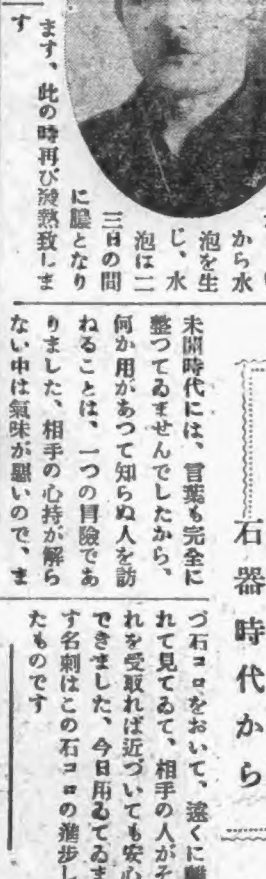 から水
泡を生
じ、水
泡は二
三日の間
に膿となり
ます、此の時再び發熱致しま
す
石器時代から
未開時代には、言葉も完全に
整つてゐませんでしたから、
何か用があつて知らぬ人を訪
ねることは、一つの冒險であ
りました、相手の心持が解ら
ない中は氣味が惡いので、ま
づ石コロをおいて、遠くに離
れて見てゐて、相手の人がそ
れを受取れば近づいても安心
できました、今日用ゐてゐま
す名刺はこの石コロの進步し
たものです